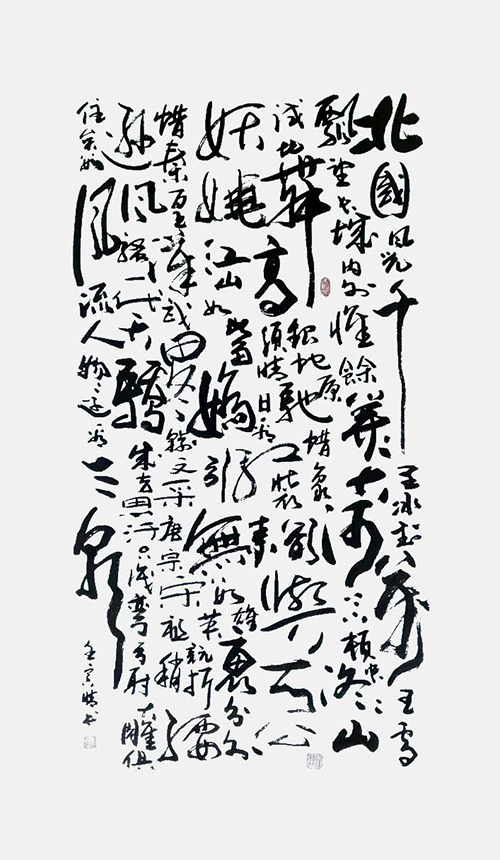 北國風光千里冰封萬里雪
飄望長城內外惟餘莽莽大河上下頓失滔滔山
舞銀蛇原馳蠟象欲與天公
試比高須晴日看紅裝素裹分外
妖嬈江山如此多嬌引無數英雄競折腰
惜秦皇漢武略輸文采唐宗宋祖稍
遜風騷一代天驕成吉思汗只識彎弓射大雕俱
往矣數風流人物還看今朝
壬寅 書